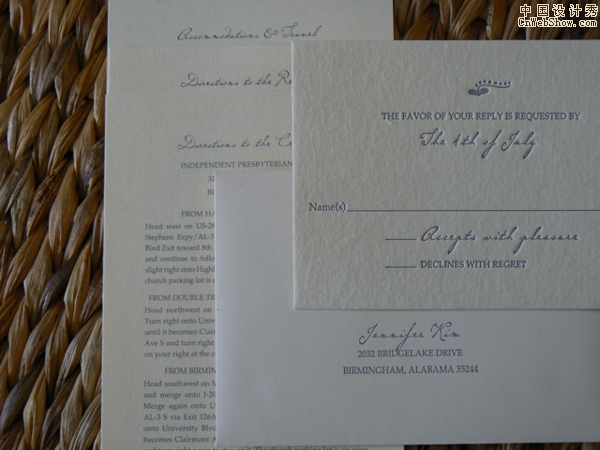 中国设计秀
CnWebShow.com
Accommodations & Travel
Directions to the
Directions to the
INDEPENDENT PRESBYTERIAN
FROM
Head west on
Stephens Expy/AL-3
Blvd Exit toward 8th
and continue to follow
slight right onto
church parking lot is
FROM DOUBLE
Head northwest on
Turn right onto
until it becomes
Ave S and turn right
on your right at the
FROM
Head southwest on
and merge onto
Merge again onto
AL-3 S via Exit 126A
onto University Blvd
becomes Clairmont
THE FAVOR OF YOUR REPLY IS REQUESTED BY
The 4th of July
Name(s)
Accepts with pleasure
DECLINES WITH REGRET
Jennifer Kim
2032 BRIDGELAKE DRIVE
BIRMINGHAM, ALABAMA 35244